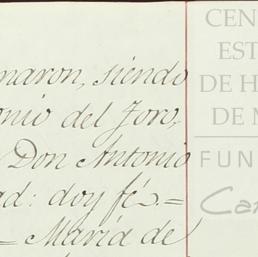 maron, siendo
onio del Toro,
Don Antonio
ad: doy fé =
= María de
CEN
EST
DE H
DE M
FUN
Ca